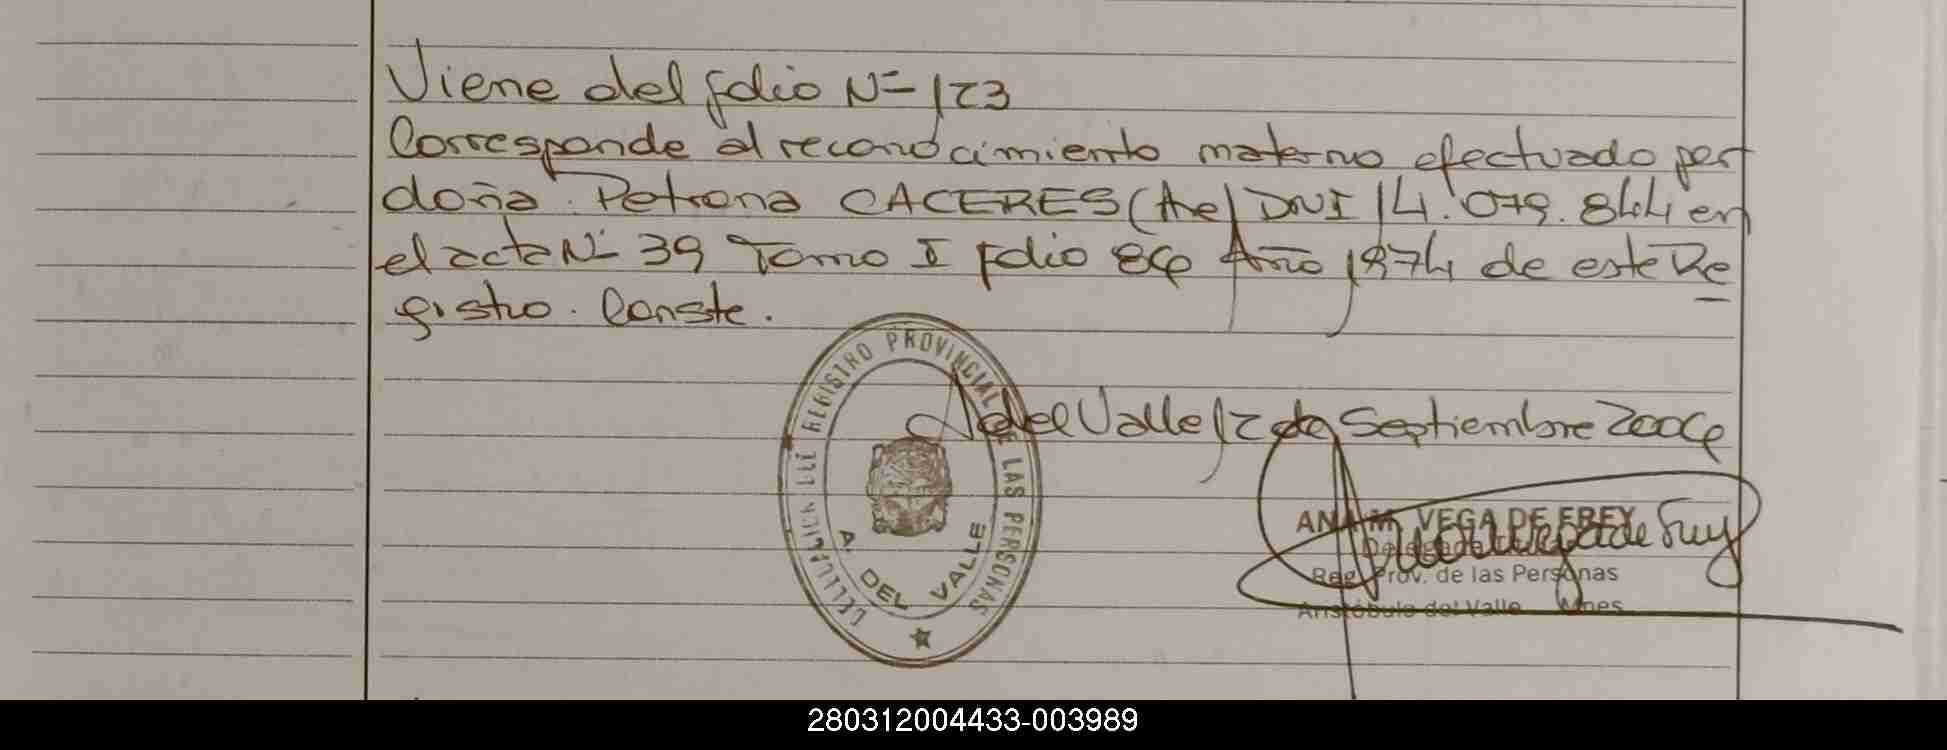 Viene del folio Nº 123
Corresponde al reconocimiento materno efectuado por
doña Petrona CACERES (Arg) DNI 14.079.844 en
el acta Nº 39 Tomo I folio 86 Año 1974 de este Re
gistro. Conste.
A del Valle 12 de Septiembre 2006
REGISTRO PROVINCIAL DE LAS PERSONAS
DELEGACION
A. DEL VALLE
ANA M. VEGA DE FREY
Delegada
Reg. Prov. de las Personas
Aristóbulo del Valle Mnes
280312004433-003989